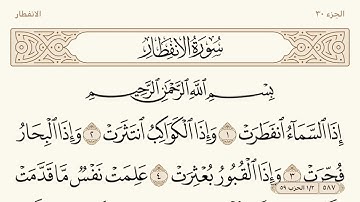 الانفطار
الجزء ٣٠
سُورَةُ الِانفِطَارِ
بِسْمِ اللَّهِ الرَّحْمَٰنِ الرَّحِيمِ
إِذَا السَّمَاءُ انفَطَرَتْ ١ وَإِذَا الْكَوَاكِبُ انتَثَرَتْ ٢ وَإِذَا الْبِحَارُ
فُجِّرَتْ ٣ وَإِذَا الْقُبُورُ بُعْثِرَتْ ٤ عَلِمَتْ نَفْسٌ مَّا قَدَّمَتْ
٥٨٧ ١/٢ الحزب ٥٩